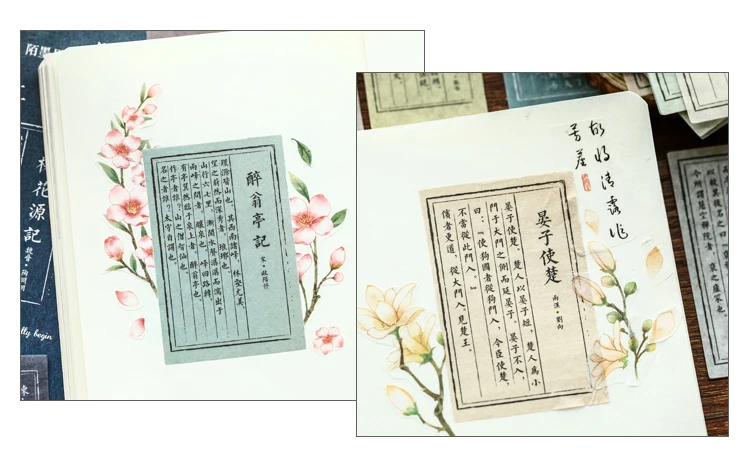 陌墨
桃花源記
魏晉·陶淵明
lly begin
醉翁亭記
宋·歐陽脩
環滁皆山也。其西南諸峰,林壑尤美,
望之蔚然而深秀者,琅琊也。
山行六七里,漸聞水聲潺潺而瀉出于
兩峰之間者,釀泉也。峰回路轉,
有亭翼然臨于泉上者,醉翁亭也。
作亭者誰?山之僧智仙也。
名之者誰?太守自謂也。
故将清露作
芳塵
晏子使楚
西漢·劉向
晏子使楚。楚人以晏子短,楚人為小
門于大門之側而延晏子。晏子不入,
曰:「使狗國者從狗門入,今臣使楚,
不當從此門入。」
儐者更道,從大門入見楚王。